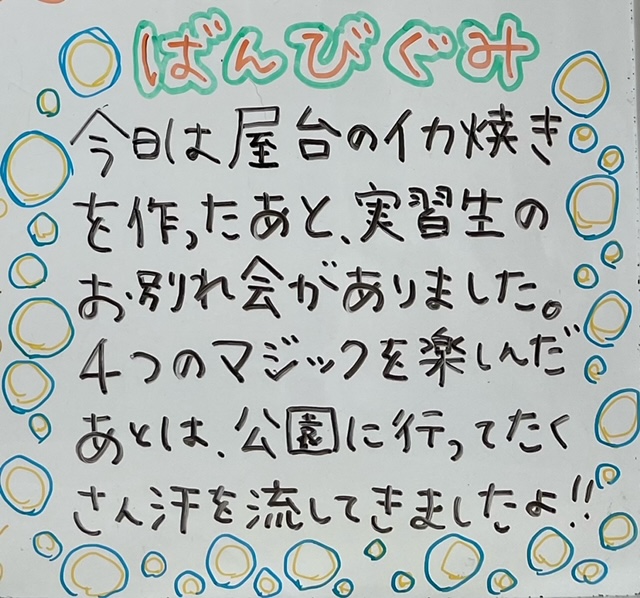 ばんびぐみ
今日は屋台のイカ焼き
を作ったあと、実習生の
お別れ会がありました。
4つのマジックを楽しんだ
あとは、公園に行ってたく
さん汗を流してきましたよ!!